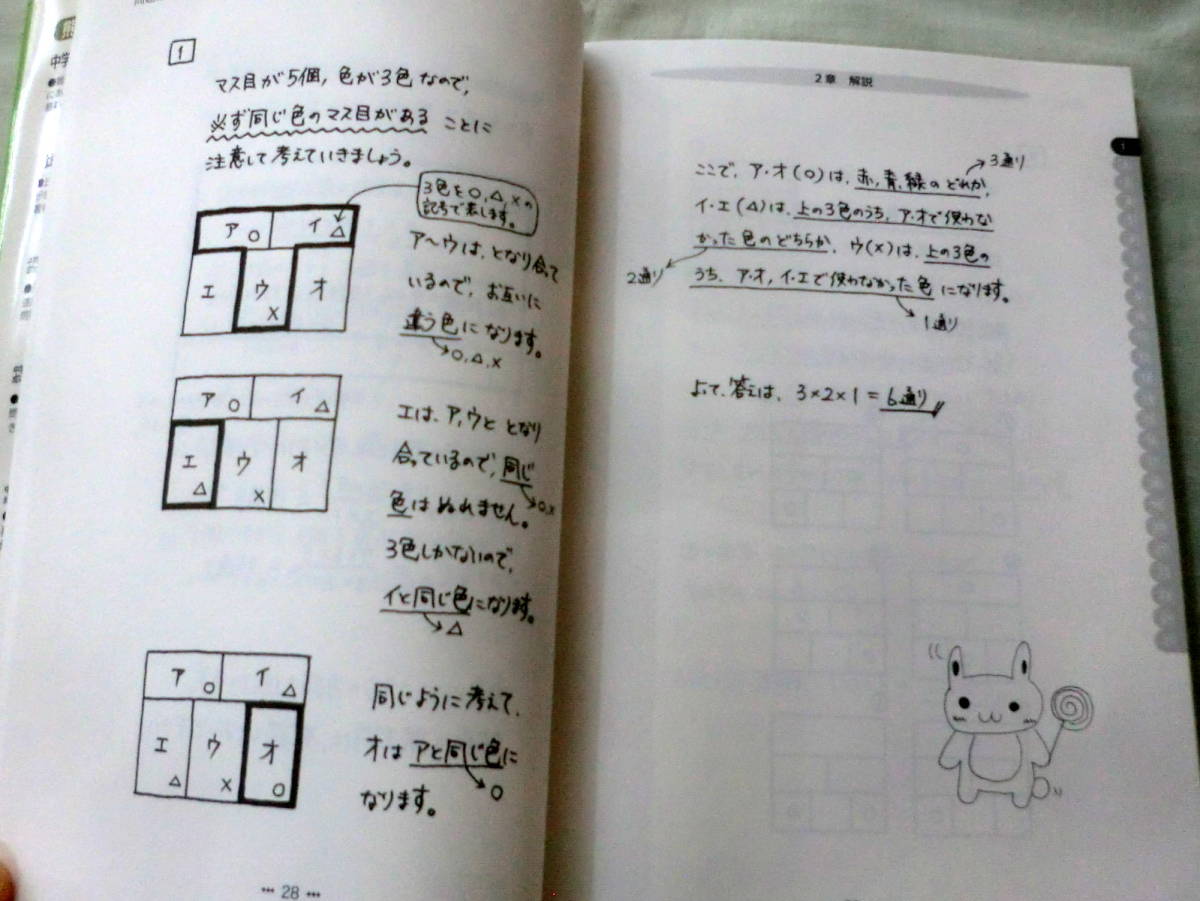 1
マス目が5個，色が3色なので，
※ず同じ色のマス目がある ことに
注意して考えていきましょう。
3色を○，△，×の
記号で表します。
ア ○ イ △
エ ウ × オ
ア〜ウは、となり合って
いるので，お互いに
違う色になります。
○，△，×
ア ○ イ △
エ △ ウ × オ
エは、ア，ウと となり
合っているので，同じ
○，×
色はぬれません。
3色しかないので，
イと同じ色になります。
△
ア ○ イ △
エ △ ウ × オ ○
同じように考えて，
オは アと同じ色に
○
なります。
28
2章 解説
1
3通り
ここで，ア・オ(○)は，赤，青，緑のどれか，
イ・エ(△)は，上の3色のうち，ア・オで使わな
かった色のどちらか，ウ(×)は，上の3色の
2通り
うち，ア・オ，イ・エで使わなかった色になります。
1通り
よって，答えは，3×2×1＝6通り
中学